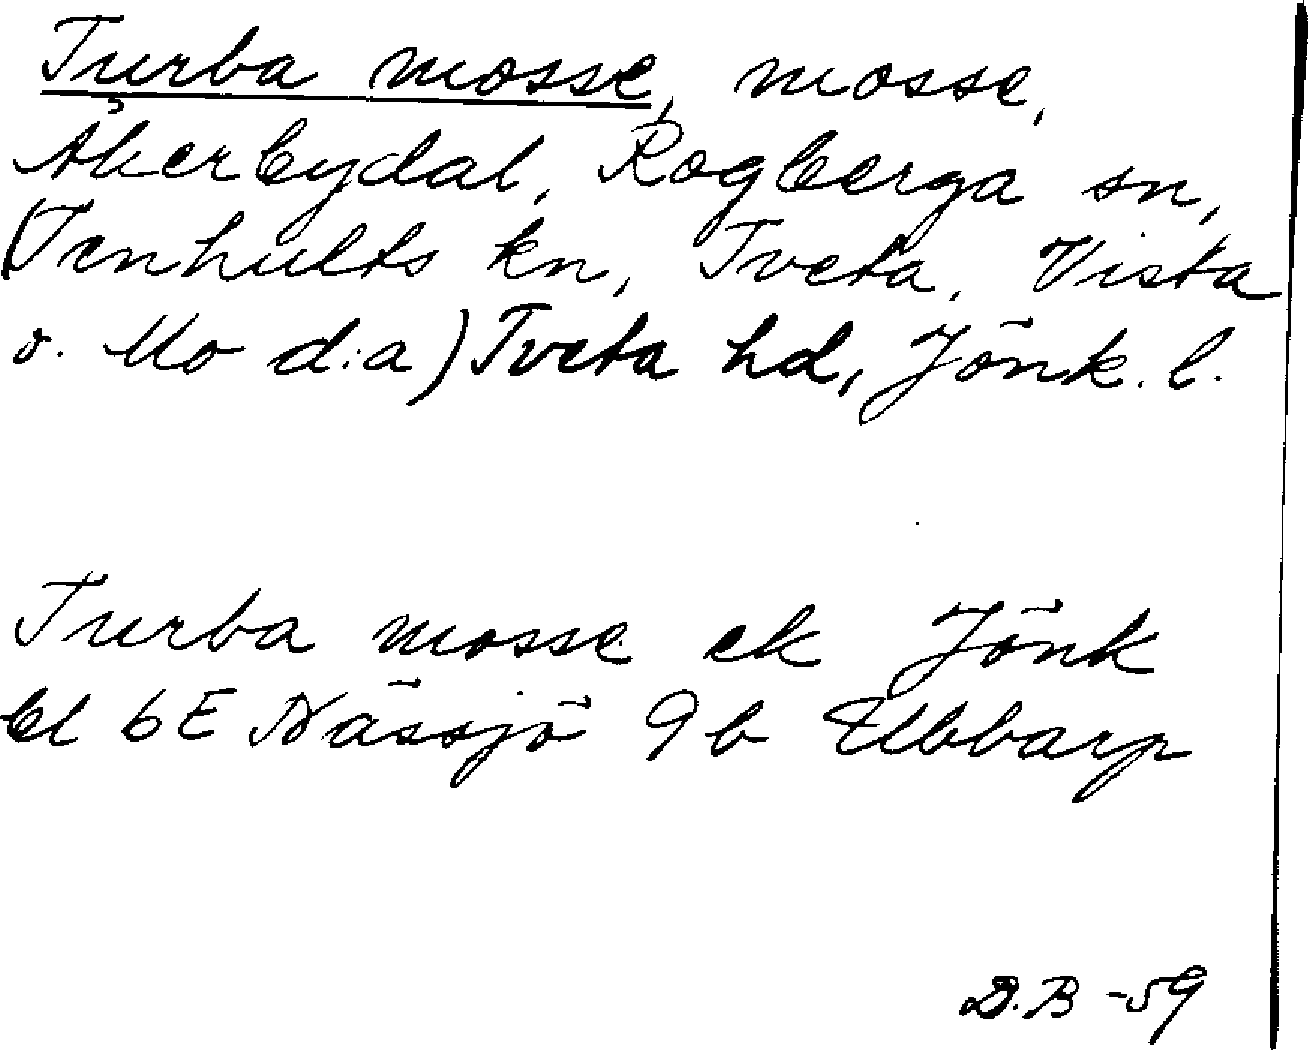 Turba mosse, mosse,
Åkerbydal, Rogberga sn,
(Tenhults kn, Tveta, Vista
o. Mo d:a) Tveta hd, Jönk. l.
Turba mosse ek Jönk
bl 6E Nässjö 9b Ubbarp
D.B -59